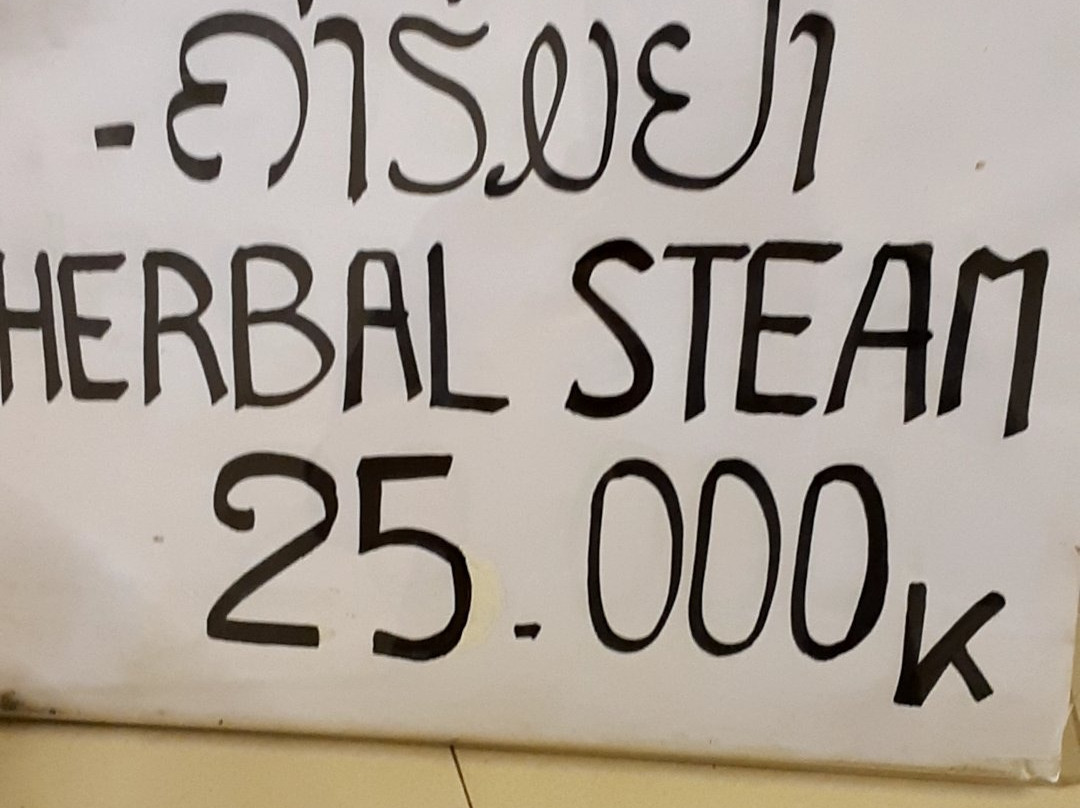 - ຄ່າຮົມຢາ
HERBAL STEAM
25.000K